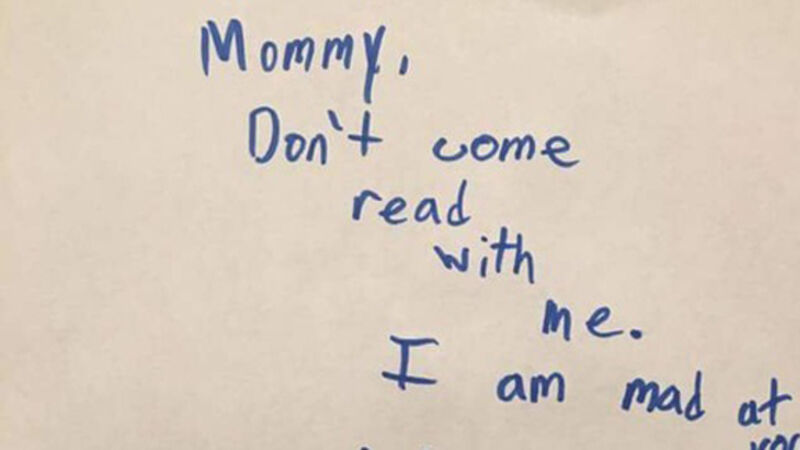 Mommy,
Don't come
read
with
me.
I am mad at